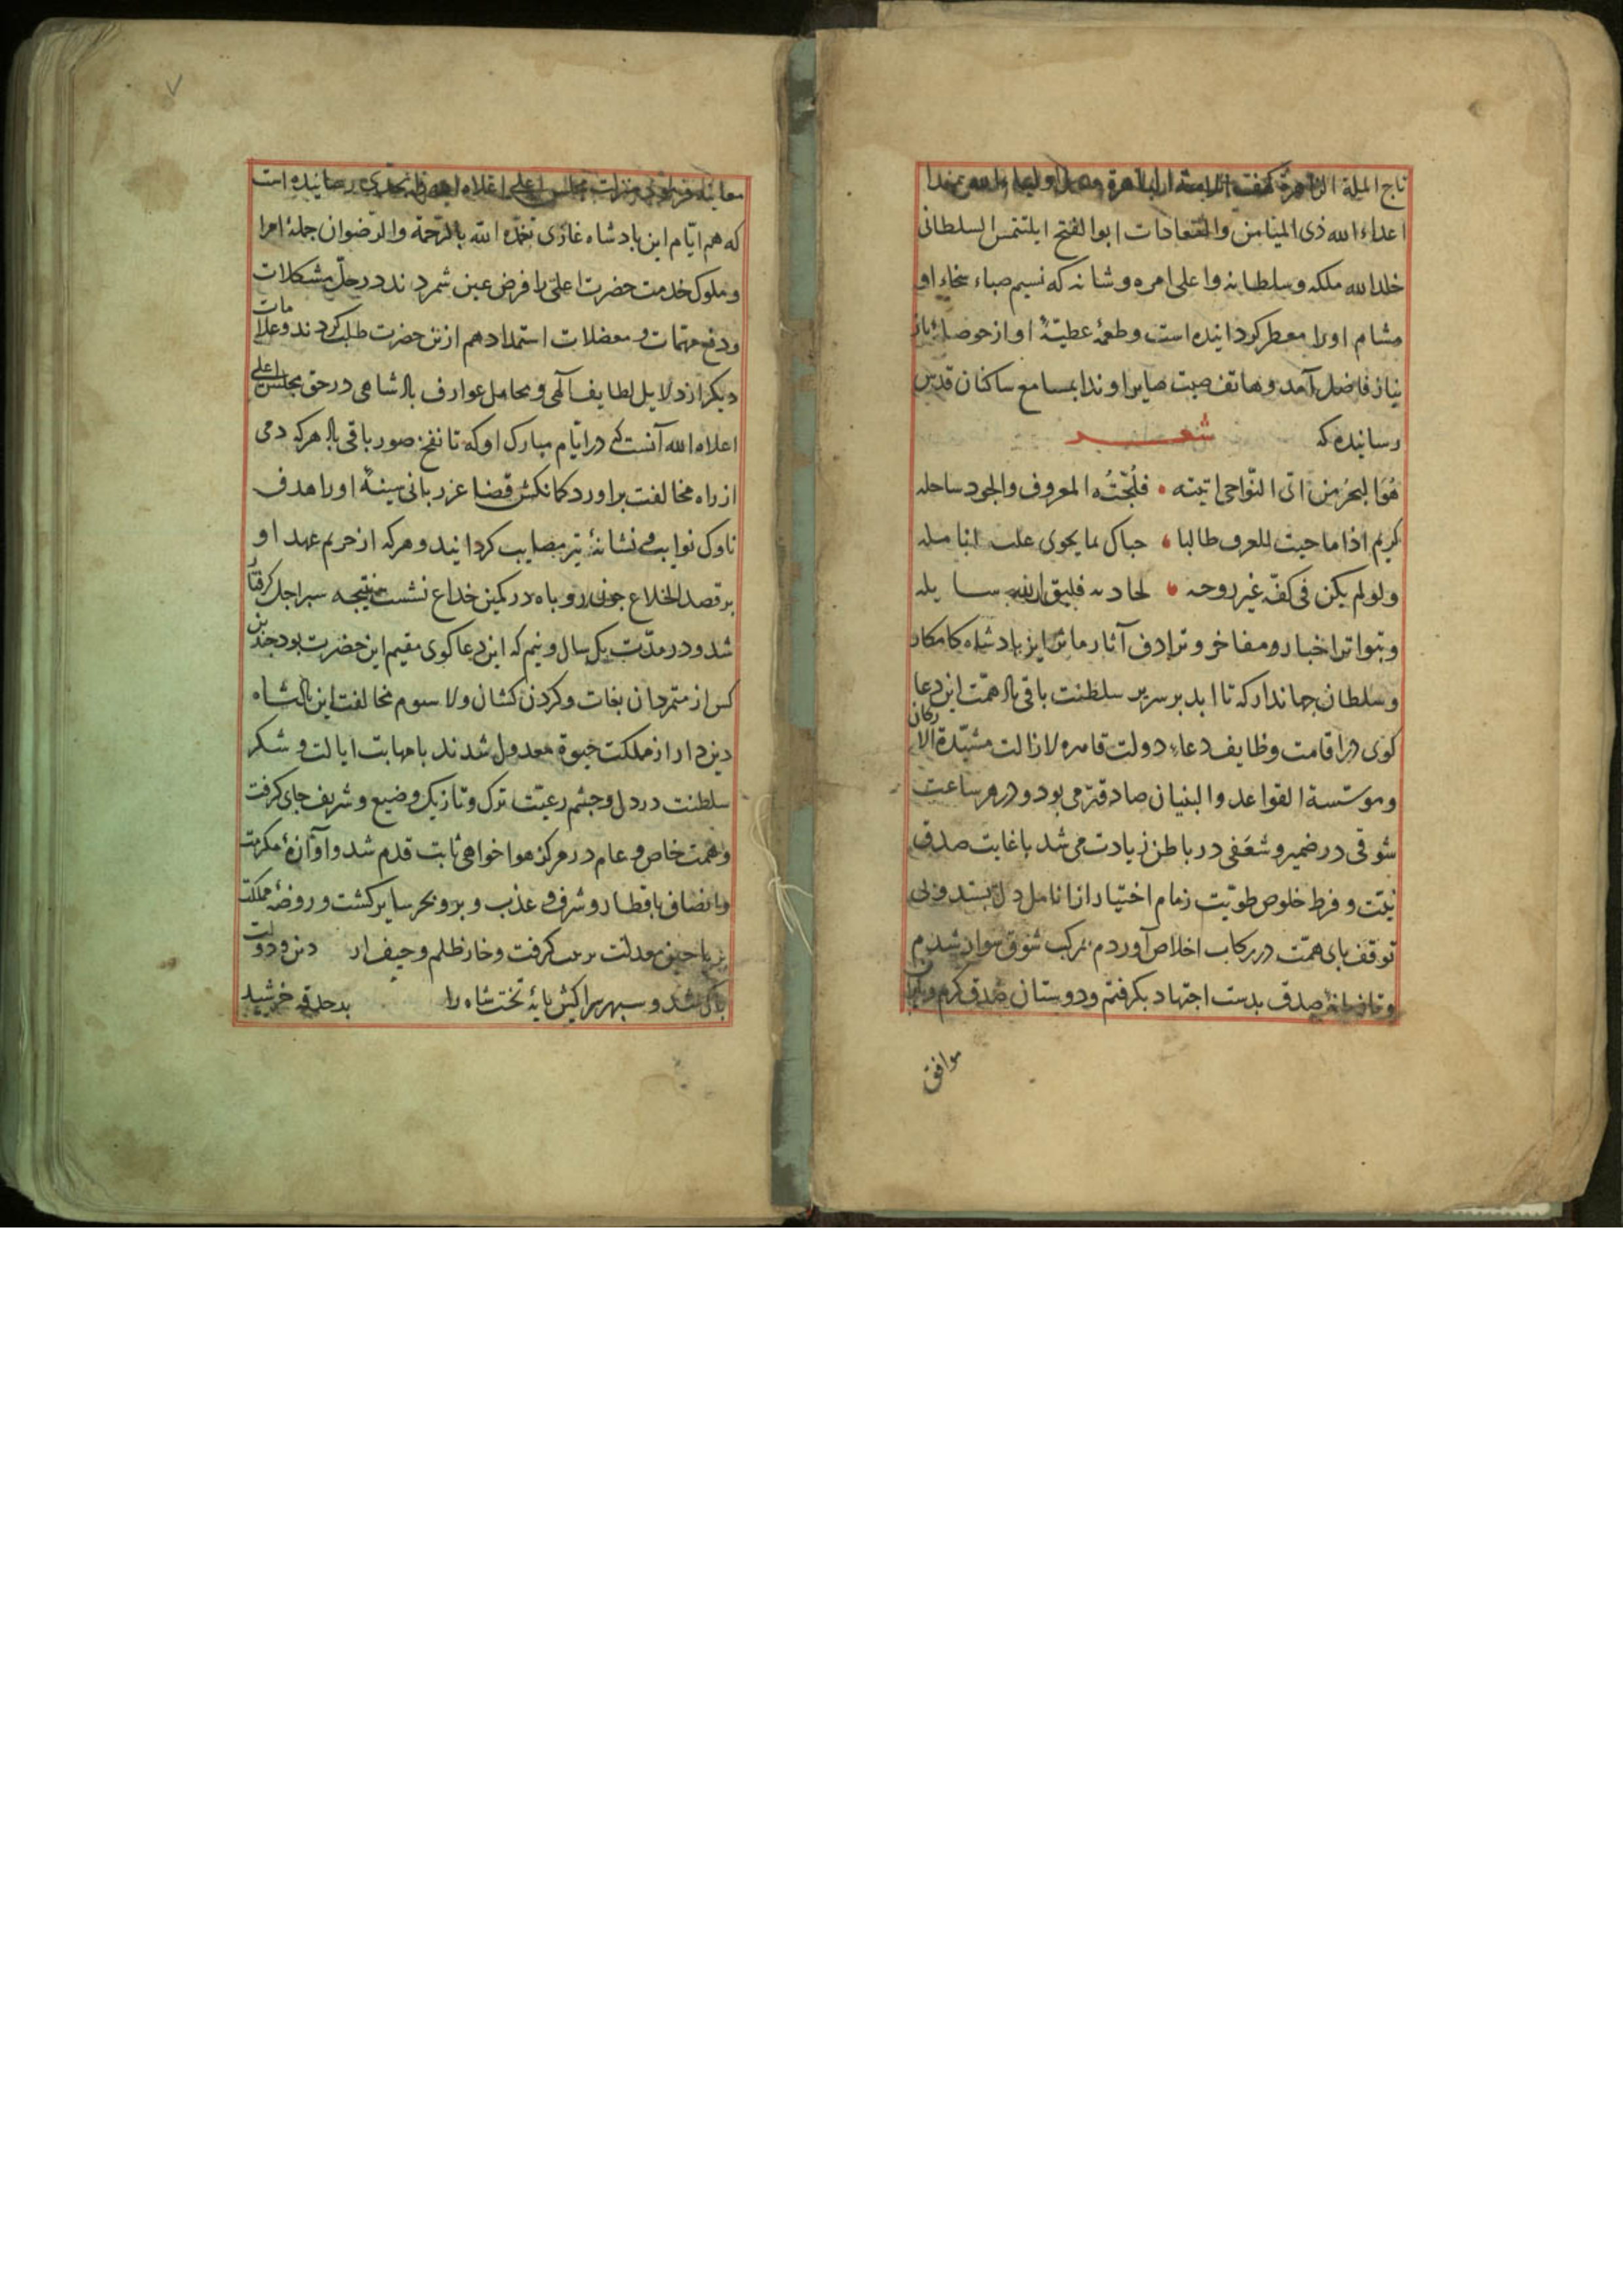 تاج الملة الزاهرة کهف الامة الباهرة
اعداء الله ذی المیامن والسعادات ابو الفتح ایلتتمس السلطانی
خلد الله ملکه و سلطانه و اعلی امره و شانه که نسیم صباء سخاء او
مشام او را معطر کردانیده است و طعمهٔ عطیّهٔ او از حوصلهٔ باز
نیاز فاضل آمد و هاتف صیت او ندا بمسامع ساکنان قدس
رسانیده که شعـــر
هُوَ البحرُ من اتی النّواحی اتیته • فلُجّتُه المعروف والجود ساحله
کریم اذا ما جیت للعرف طالبا • حباک بما یحوی علیه انامله
ولو لم یکن فی کفّه غیر روحه • لجاد به فلیتق الله سایله
و بتواتر اخبار و مفاخر و ترادف آثار ماثر این بادشاه کامکار
و سلطان جهاندار که تا ابد بر سریر سلطنت باقی باد همّت این دعا
کوی در اقامت وظایف دعاء دولت قاهره لا زالت مشیّدة الارکان
و موسّسة القواعد والبنیان صادقتر می بود و در هر ساعت
شوقی در ضمیر و شعفی در باطن زیادت می شد با غایت صدق
نیّت و فرط خلوص طویّت زمام اختیار از انامل دل بستد و بی
توقف بای همّت در رکاب اخلاص آوردم بر مرکب شوق سوار شدم
و تازیانهٔ صدق بدست اجتهاد بکرفتم و دوستان صدق کرم و
موافق
معاینه مجلس اعلی اعلاه الله رسانیده است
که هم ایّام این بادشاه غازی تغمّده الله بالرّحمة والرّضوان جملهٔ امرا
و ملوک خدمت حضرت اعلی را فرض عین شمردند در حلّ مشکلات
و دفع مهمّات و معضلات استمداد هم ازین حضرت طلب کردند و علامات
دیکر از دلایل لطایف الهی و محامل عوارف بادشاهی در حق مجلس اعلی
اعلاه الله آنست که در ایّام مبارک او که تا نفخ صور باقی باد هر که دمی
از راه مخالفت براورد کمانکش قضا عز ربانی سینهٔ او را هدف
ناوک نوایب و نشانهٔ تیر مصایب کردانید و هر که از حریم عهد او
بر قصد انخلاع چون روباه در کمین خداع نشست بنتیجه سیر اجل کرفتار
شد و در مدّت یک سال و نیم که این دعا کوی مقیم این حضرت بود چندین
کس از متمردان بغات و کردن کشان و لا سوم مخالفت این بادشاه
دین دار از مملکت حیوة معدول شدند بامهابت ایالت و شکر
سلطنت در دل و چشم رعیّت ترک و تازیک وضیع و شریف جای کرفت
و همّت خاص و عام در مرکز هواخواهی ثابت قدم شد و آوازهٔ مکرمت
و انصاف باقطار و شرق و غرب و بر و بحر سایر کشت و روضهٔ مملکت
بریاحین معدلت کرفت و خار ظلم و حیف از دین و دولت
باک شد و سپهر سرا کیش بایهٔ تخت شاه را بدحدقه خرشید